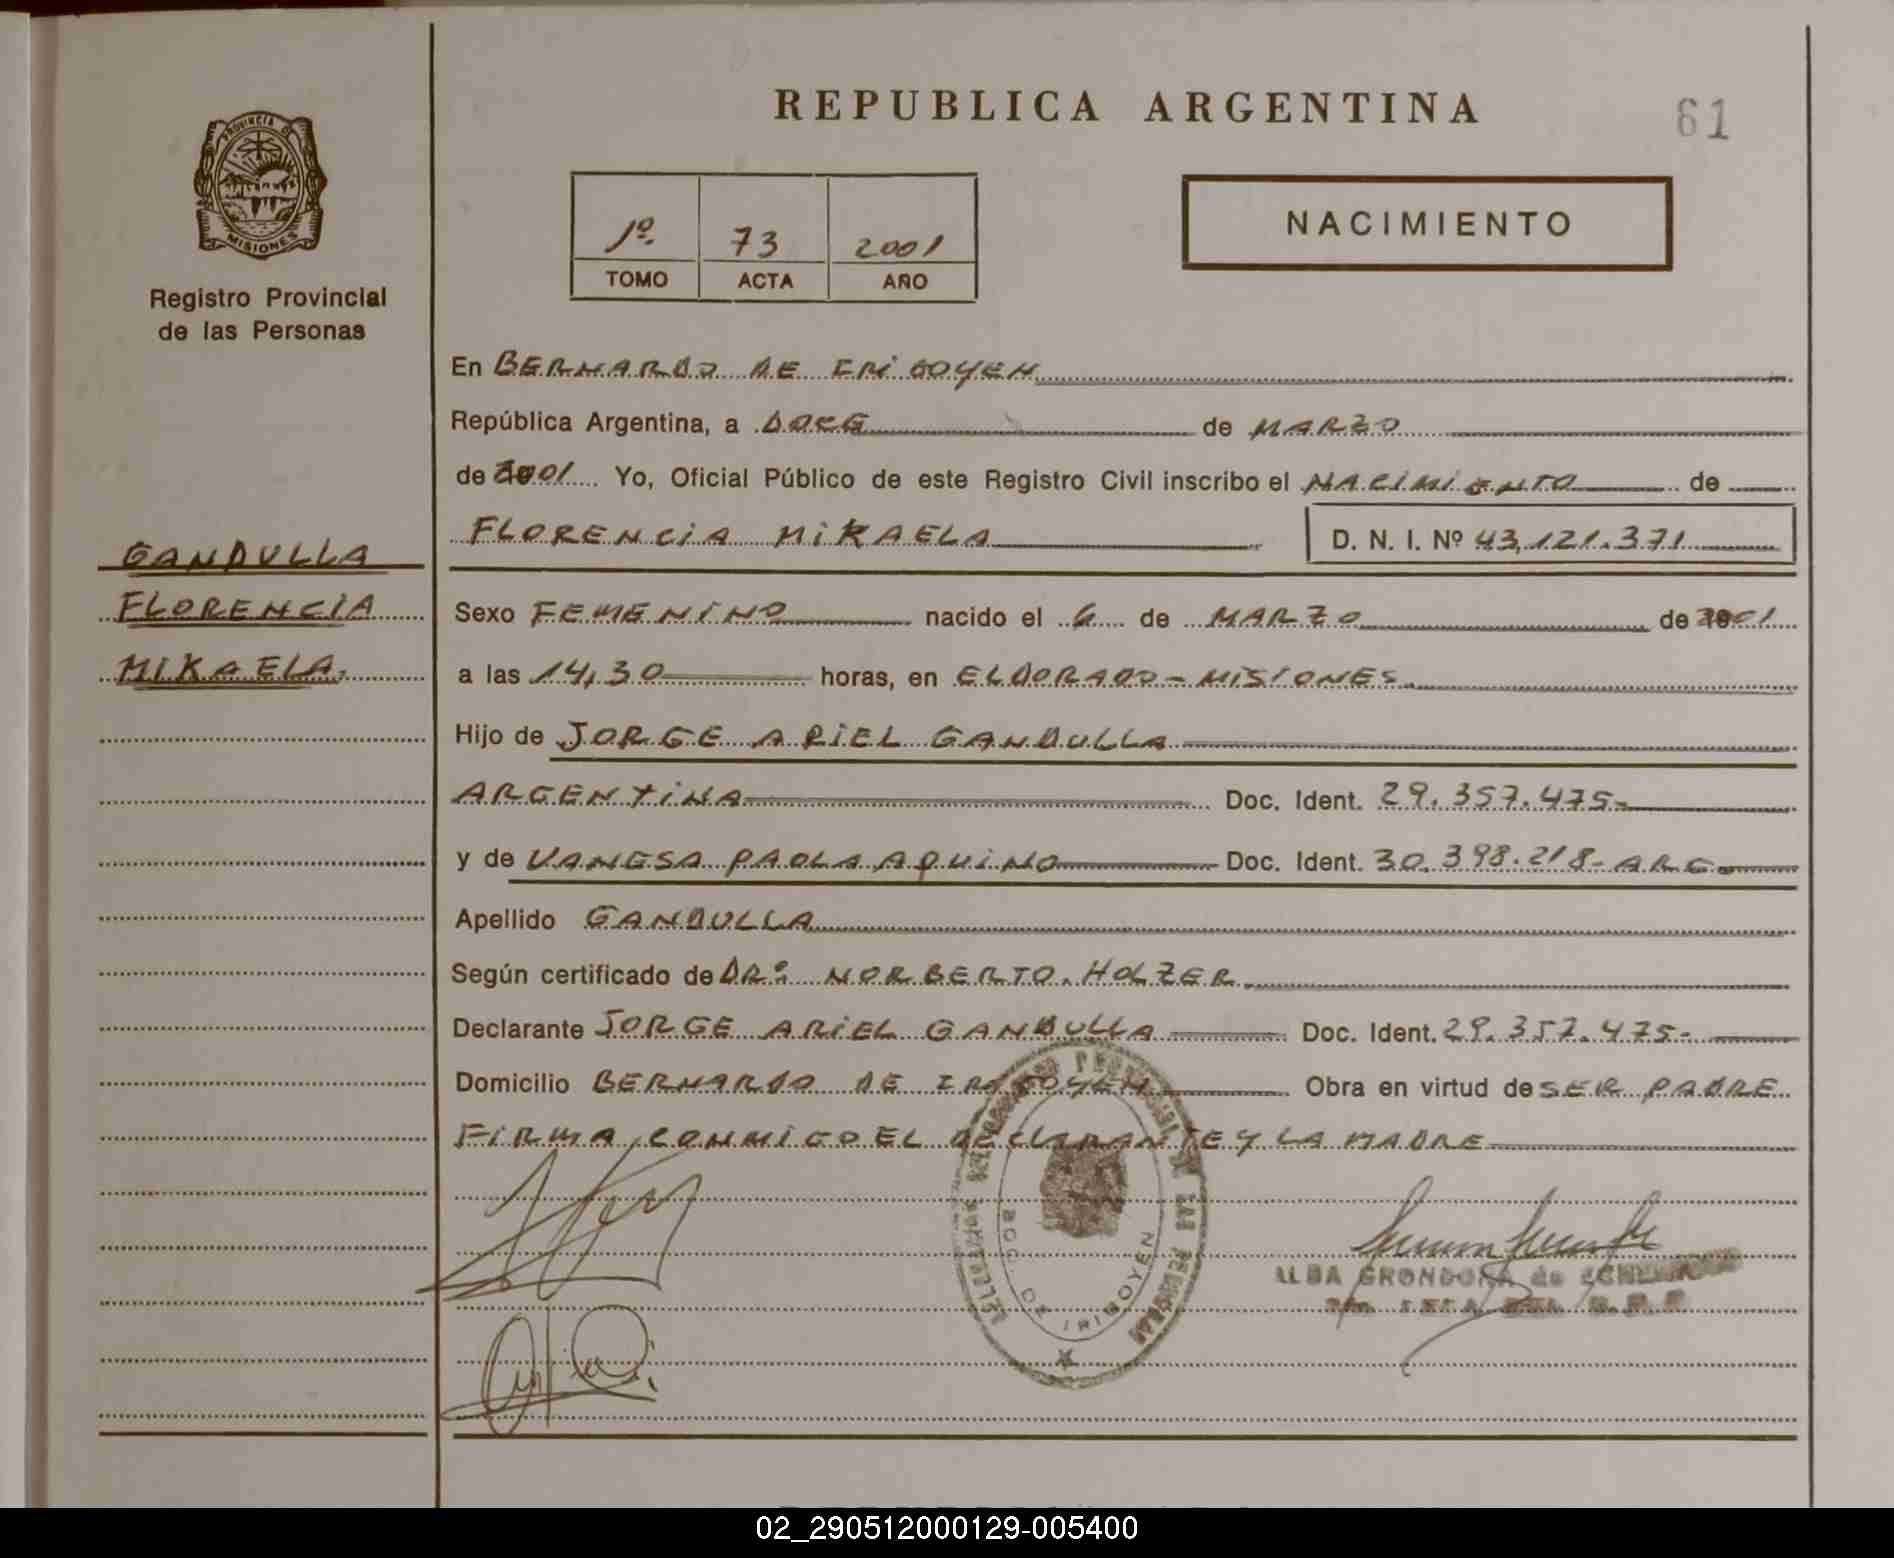 REPUBLICA ARGENTINA
61
PROVINCIA DE
MISIONES
Registro Provincial
de las Personas
1º. 73 2001
TOMO ACTA AÑO
NACIMIENTO
En BERNARDO DE IRIGOYEN
República Argentina, a DOCE de MARZO
de 2001 Yo, Oficial Público de este Registro Civil inscribo el NACIMIENTO de
FLORENCIA MIKAELA D. N. I. Nº 43,121.371
GANDULLA
FLORENCIA
MIKAELA.
Sexo FEMENINO nacido el 6 de MARZO de 2001
a las 14,30 horas, en ELDORADO - MISIONES.
Hijo de JORGE ARIEL GANDULLA
ARGENTINA Doc. Ident. 29.357.475-
y de VANESA PAOLA AQUINO Doc. Ident. 30.398.218- ARG.
Apellido GANDULLA
Según certificado de DR: NORBERTO. HOLZER.
Declarante JORGE ARIEL GANDULLA Doc. Ident. 29.357.475-
Domicilio BERNARDO DE IRIGOYEN Obra en virtud de SER PADRE
FIRMA CONMIGO EL DECLARANTE Y LA MADRE
REGISTRO PROVINCIAL DE LAS PERSONAS
BDO. DE IRIGOYEN
ALBA GRONDONA de
02_290512000129-005400